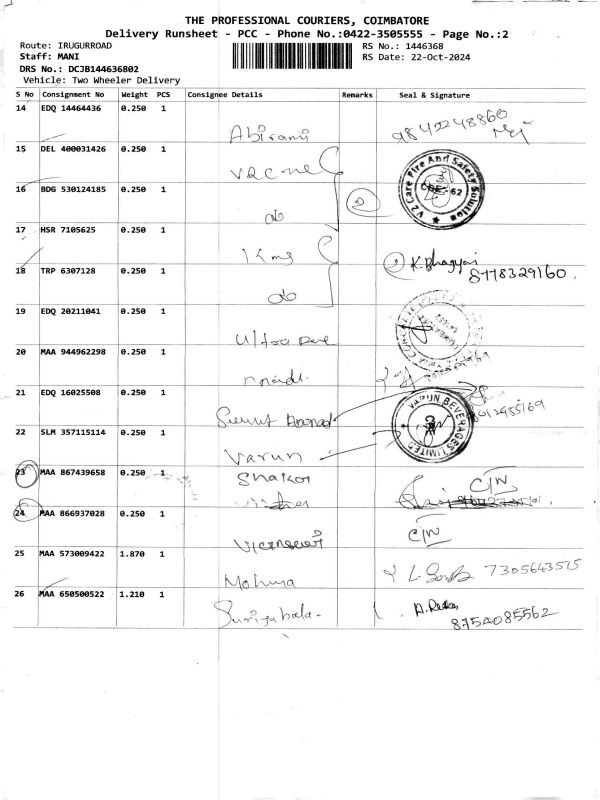 THE PROFESSIONAL COURIERS, COIMBATORE
Delivery Runsheet - PCC - Phone No.:0422-3505555 - Page No.:2
Route: IRUGURROAD RS No.: 1446368
Staff: MANI RS Date: 22-Oct-2024
DRS No.: DCJB144636802
Vehicle: Two Wheeler Delivery
S No Consignment No Weight PCS Consignee Details Remarks Seal & Signature
14 EDQ 14464436 0.250 1
Abirami 9842248860
15 DEL 400031426 0.250 1
V Z Care Fire And Safety Solution
CBE - 62
16 BDG 530124185 0.250 1
do 2
17 HSR 7105625 0.250 1
Kmg
18 TRP 6307128 0.250 1
do 2 K. Bhagyai
8778329160.
19 EDQ 20211041 0.250 1
Ultra
20 MAA 944962298 0.250 1
21 EDQ 16025508 0.250 1
VARUN BEVERAGES LIMITED
CBE
22 SLM 357115114 0.250 1
Varun
23 MAA 867439658 0.250 1
Shakor C/N
24 MAA 866937028 0.250 1
C/N
25 MAA 573009422 1.870 1
Mohuna 7305643515
26 MAA 650500522 1.210 1
Suriyabala.
8754085562